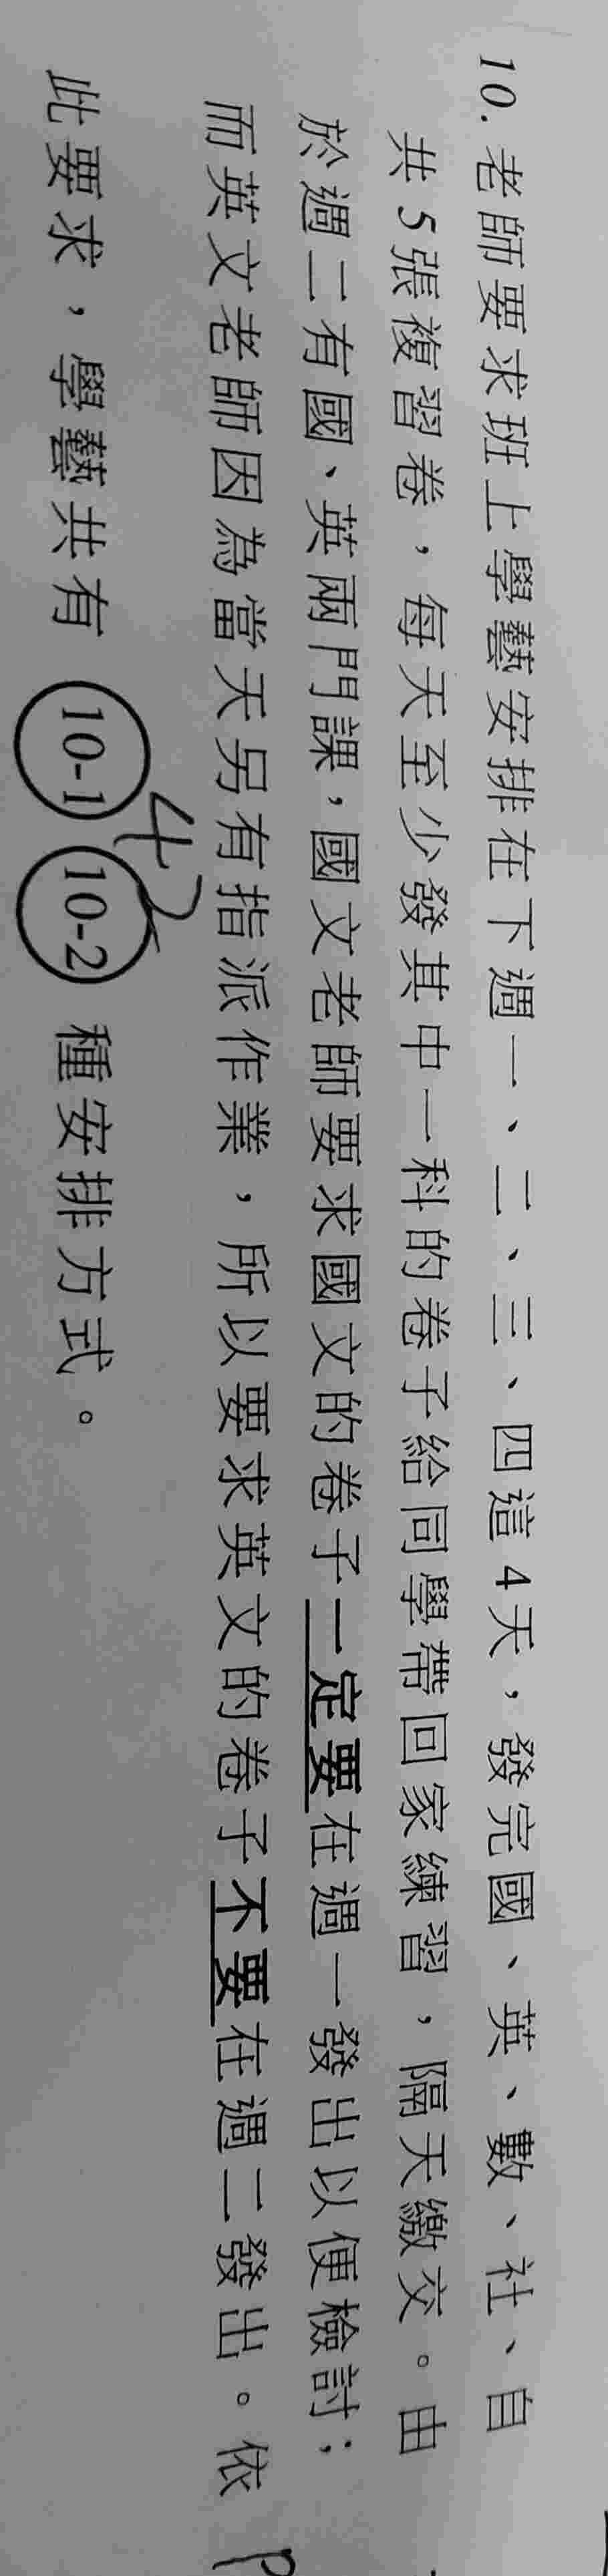 10. 老師要求班上學藝安排在下週一、二、三、四這4天，發完國、英、數、社、自
共5張複習卷，每天至少發其中一科的卷子給同學帶回家練習，隔天繳交。由
於週二有國、英兩門課，國文老師要求國文的卷子一定要在週一發出以便檢討；
而英文老師因為當天另有指派作業，所以要求英文的卷子不要在週二發出。依
此要求，學藝共有 10-1 10-2 種安排方式。
42